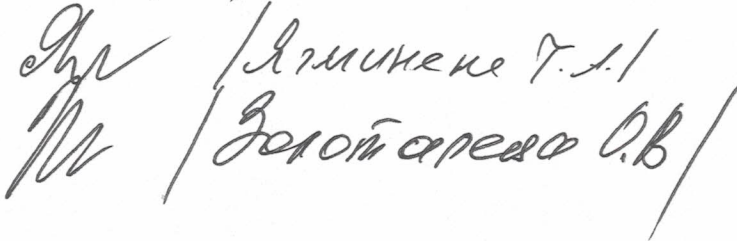 /Ягминене Т.Л/
/Золотарева О.В/